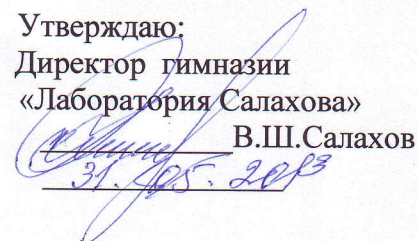 Утверждаю:
Директор гимназии
«Лаборатория Салахова»
В.Ш.Салахов
31. 05. 2013